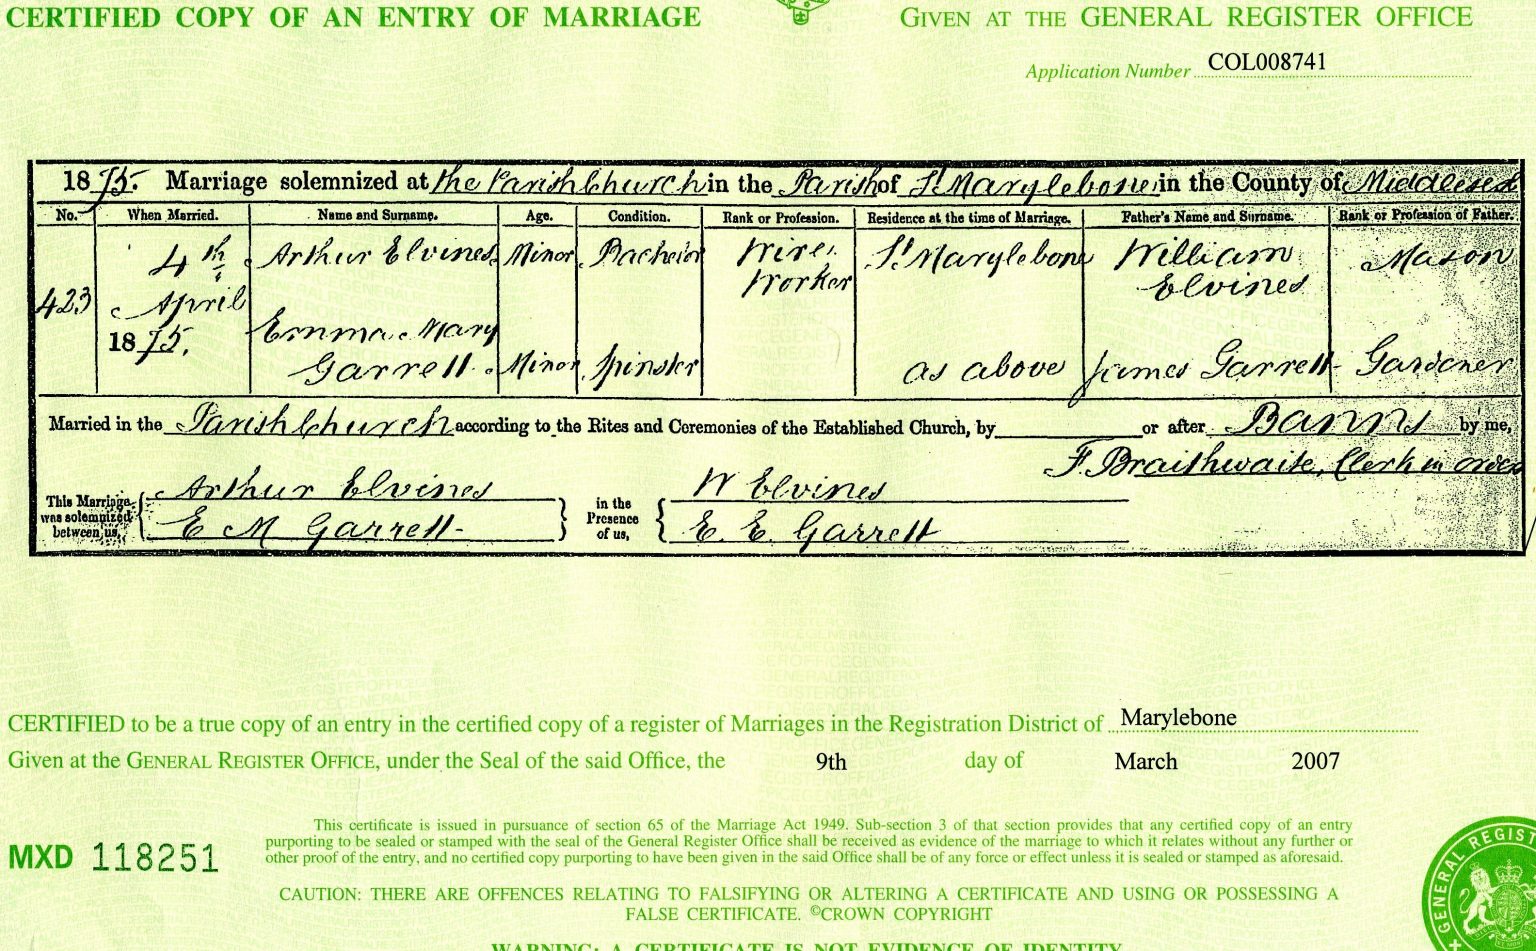 CERTIFIED COPY OF AN ENTRY OF MARRIAGE
GIVEN AT THE GENERAL REGISTER OFFICE
Application Number COL008741
1875. Marriage solemnized at the Parish Church in the Parish of St Marylebone in the County of Middlesex
No. When Married. Name and Surname. Age. Condition. Rank or Profession. Residence at the time of Marriage. Father's Name and Surname. Rank or Profession of Father.
423 4th April 1875. Arthur Elvines Minor Bachelor Wire Worker St Marylebone William Elvines Mason
Emma Mary Garrett Minor Spinster as above James Garrett Gardener
Married in the Parish Church according to the Rites and Ceremonies of the Established Church, by or after Banns by me,
F. Braithwaite, Clerk in
This Marriage was solemnized between us, Arthur Elvines in the Presence of us, W Elvines
E M Garrett E. E. Garrett
CERTIFIED to be a true copy of an entry in the certified copy of a register of Marriages in the Registration District of Marylebone
Given at the GENERAL REGISTER OFFICE, under the Seal of the said Office, the 9th day of March 2007
MXD 118251
This certificate is issued in pursuance of section 65 of the Marriage Act 1949. Sub-section 3 of that section provides that any certified copy of an entry
purporting to be sealed or stamped with the seal of the General Register Office shall be received as evidence of the marriage to which it relates without any further or
other proof of the entry, and no certified copy purporting to have been given in the said Office shall be of any force or effect unless it is sealed or stamped as aforesaid.
CAUTION: THERE ARE OFFENCES RELATING TO FALSIFYING OR ALTERING A CERTIFICATE AND USING OR POSSESSING A
FALSE CERTIFICATE. ©CROWN COPYRIGHT
WARNING: A CERTIFICATE IS NOT EVIDENCE OF IDENTITY
GENERAL REGIS